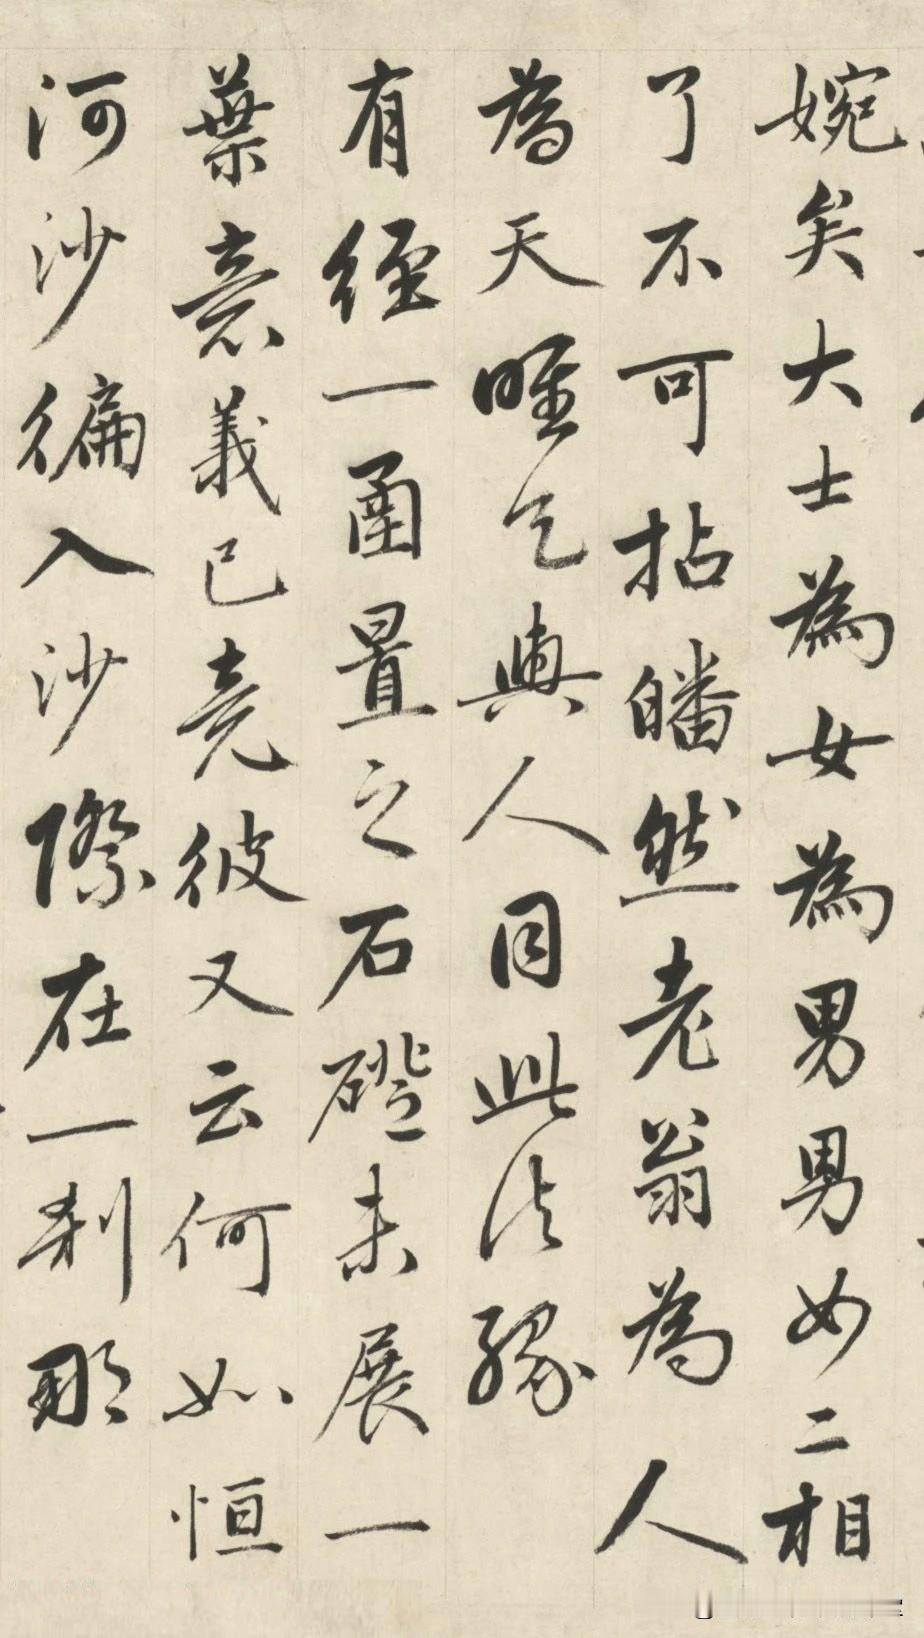 婉矣大士為女為男男女二相
了不可拈皤然老翁為人
為天唯乞與人同此法緣
有經一函置之石磴未展一
葉意義已竟彼又云何如恒
河沙徧入沙際在一剎那